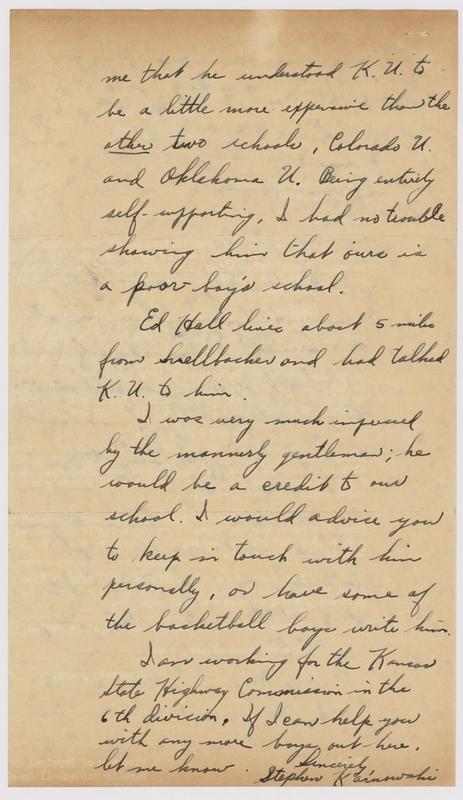 me that he understood K. U. to
be a little more expensive than the
other two schools, Colorado U.
and Oklahoma U. Being entirely
self-supporting, I had no trouble
showing him that ours is
a poor boy's school.
Ed Hall lives about 5 miles
from Snellbacker and had talked
K. U. to him.
I was very much impressed
by the mannerly gentleman; he
would be a credit to our
school. I would advise you
to keep in touch with him
personally, or have some of
the basketball boys write him.
I am working for the Kansas
State Highway Commission in the
6th division. If I can help you
with any more boys out here,
let me know.
Sincerely
Stephen Karnowski